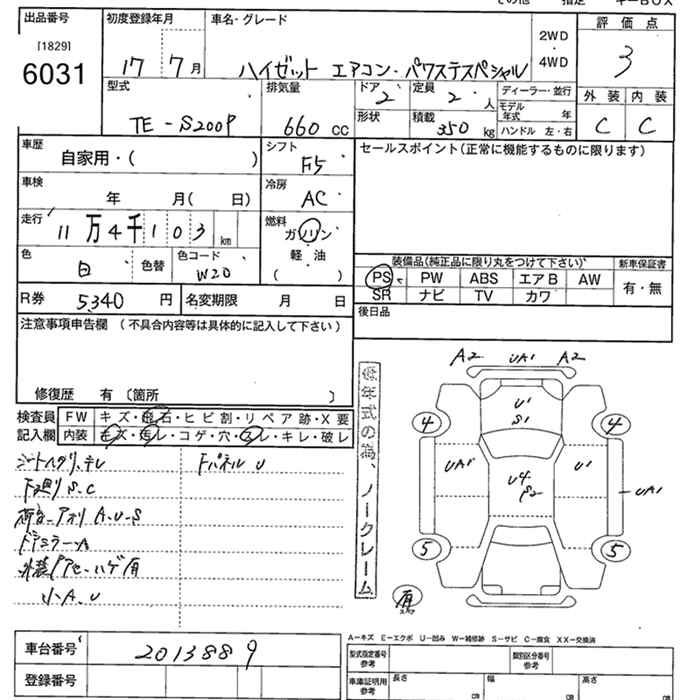 その他 指定 キーBOX
出品番号
[1829]
6031
初度登録年月
17 7月
車名・グレード
ハイゼット エアコン・パワステスペシャル
2WD
・
4WD
評価点
3
外装 内装
C C
型式
TE-S200P
排気量
660 cc
ドア
2
形状
定員
2 人
積載
350 kg
ディーラー・並行
モデル年式 年
ハンドル 左・右
車歴
自家用・( )
シフト
F5
車検
年 月( 日)
冷房
AC
走行
11万4千103 km
燃料
ガソリン
軽・油
( )
色
白 色替
色コード
W20
R券 5,340 円
名変期限 月 日
セールスポイント(正常に機能するものに限ります)
装備品(純正品に限り丸をつけて下さい)
新車保証書
PS PW ABS エアB AW
SR ナビ TV カワ
有・無
後日品
注意事項申告欄 (不具合内容等は具体的に記入して下さい)
修復歴 有〔箇所 〕
検査員記入欄
FW キズ・飛石・ヒビ割・リペア跡・X要
内装 キズ・汚レ・コゲ・穴・スレ・キレ・破レ
シートヘタリ、テレ
下廻り S.C
荷台-アオリ A.U-S
ドアミラー-A
小A.U
Fパネル U
低年式の為、ノークレーム
A2 UA1 A2
U1
S1
4 4
UA1 U1
U4
S2
UA1
5 5
有
A-キズ E-エクボ U-凹み W-補修跡 S-サビ C-腐食 XX-交換済
車台番号 2013889
登録番号
型式指定番号
参考
類別区分番号
参考
車庫証明用
参考
長さ cm
幅 cm
高さ cm